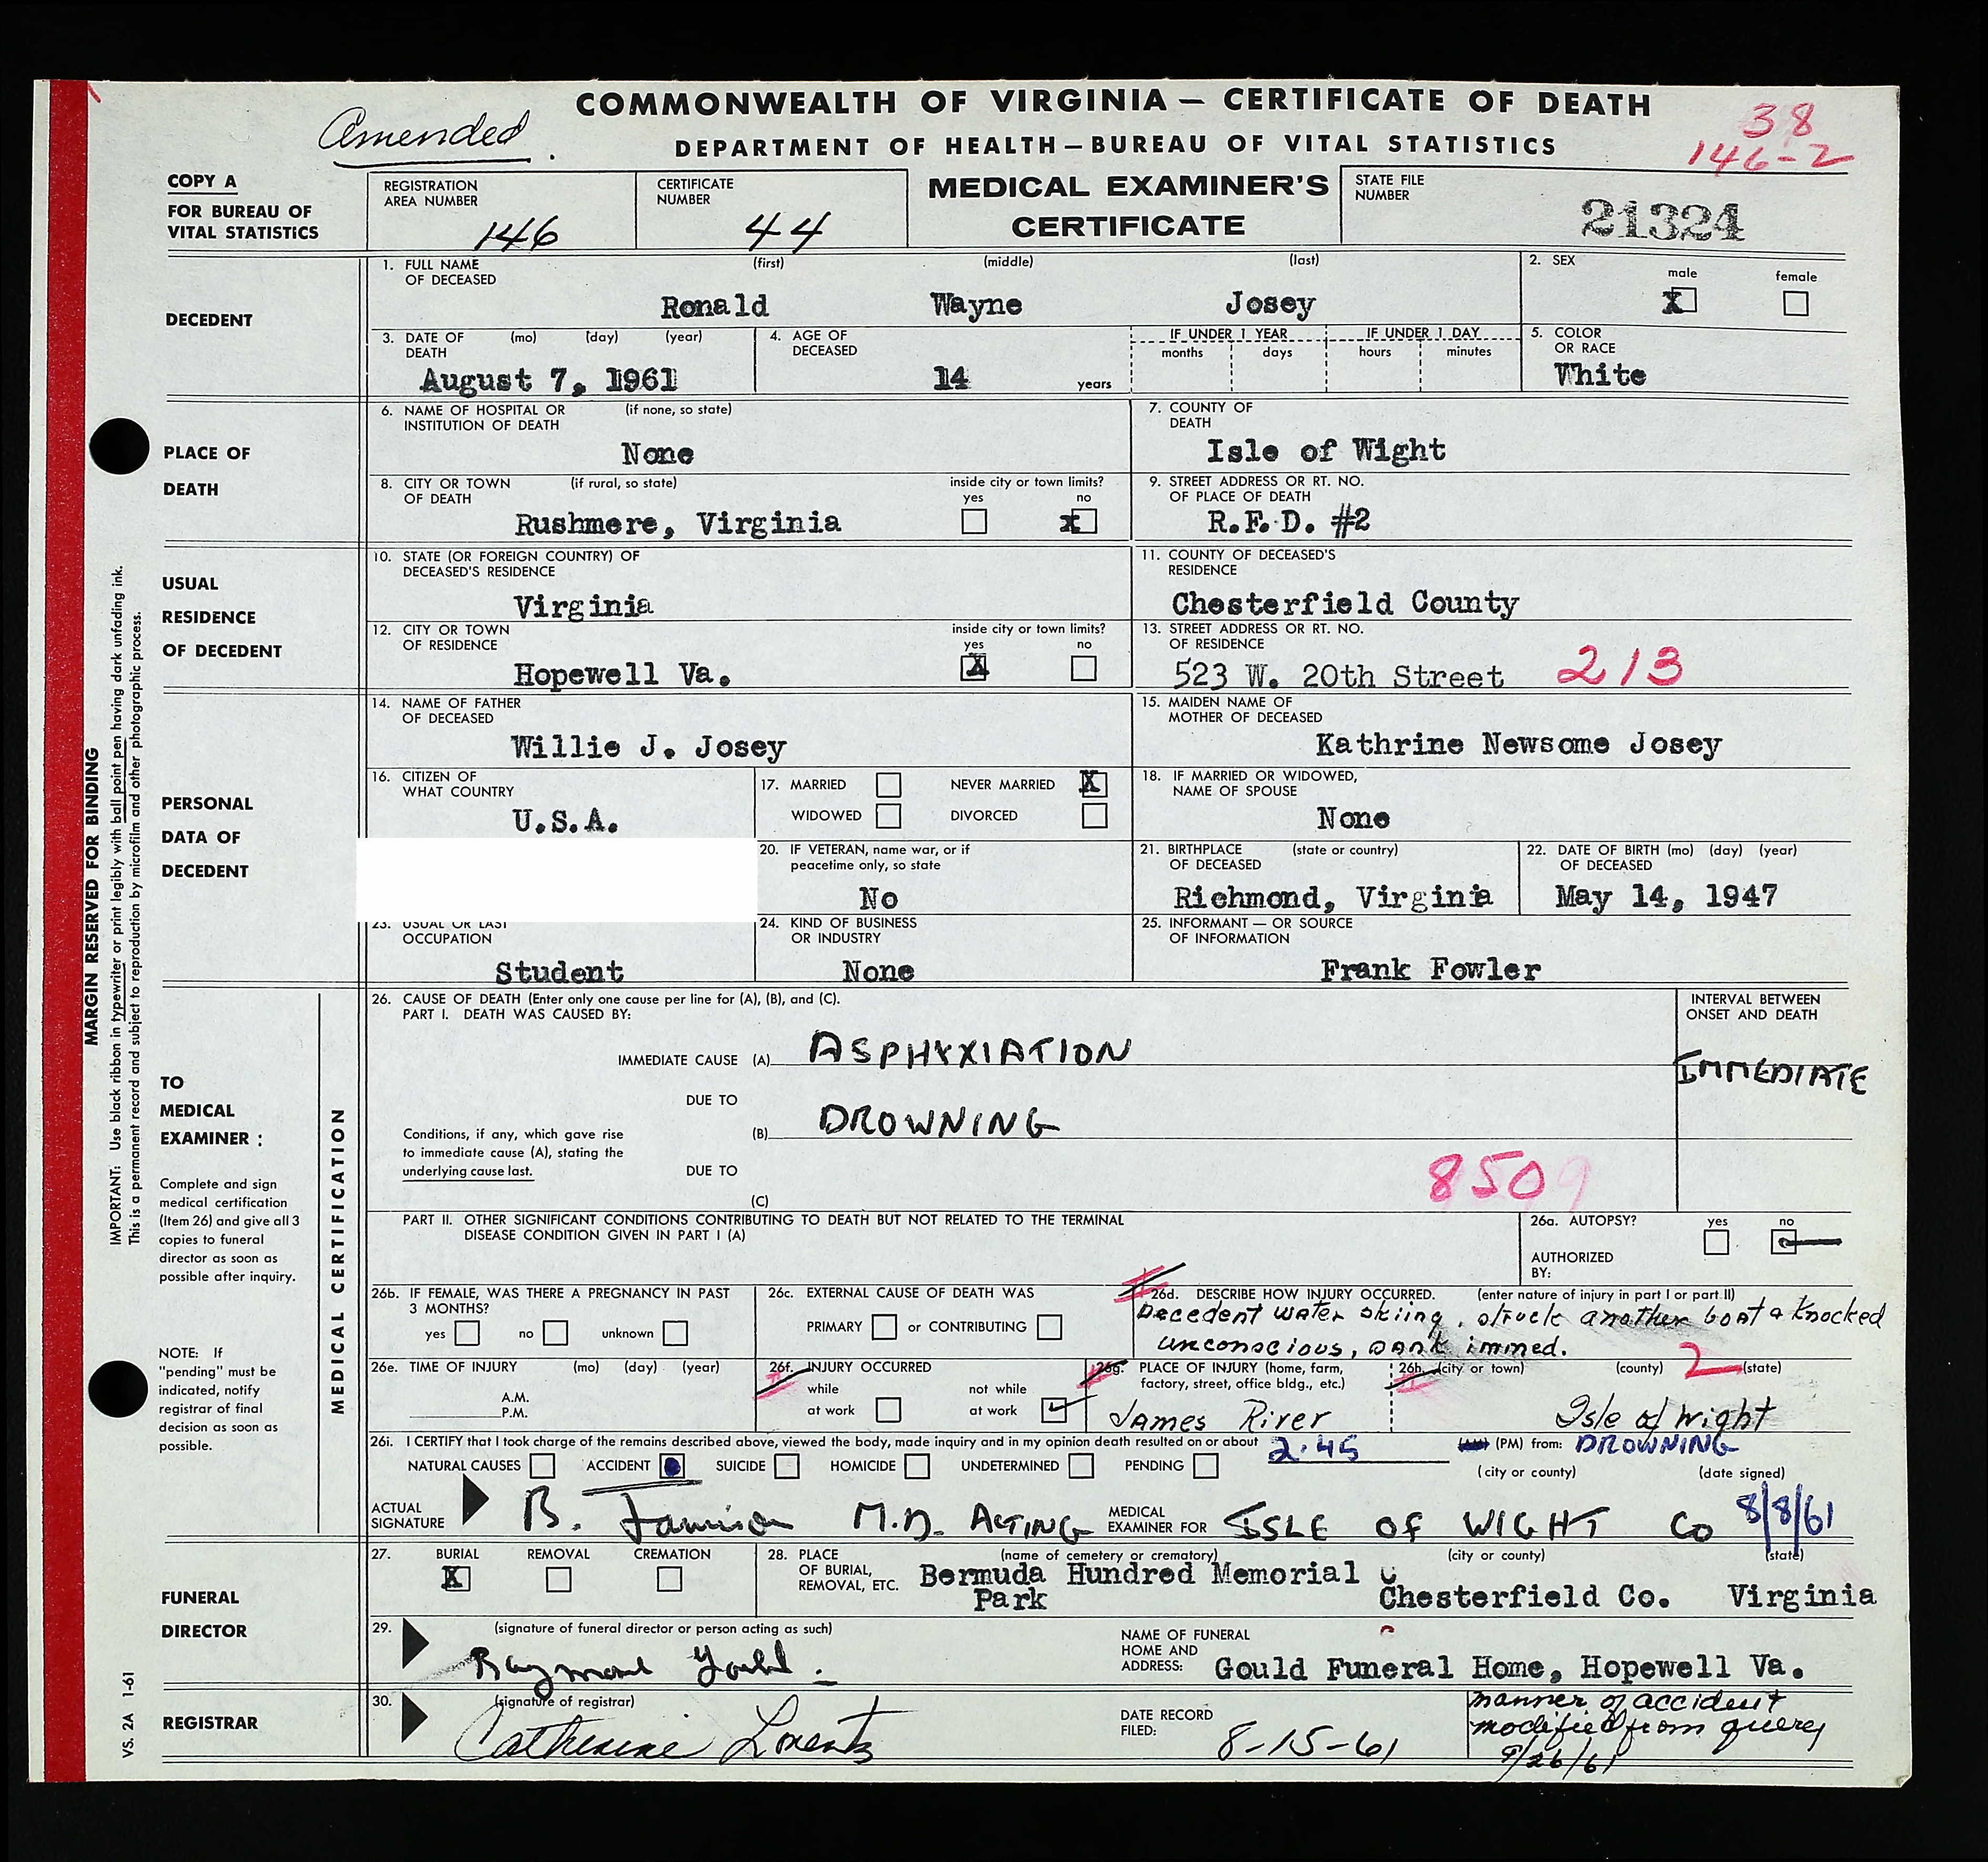 COMMONWEALTH OF VIRGINIA — CERTIFICATE OF DEATH
Amended.
DEPARTMENT OF HEALTH — BUREAU OF VITAL STATISTICS
38
146-2
COPY A
FOR BUREAU OF
VITAL STATISTICS
REGISTRATION
AREA NUMBER
146
CERTIFICATE
NUMBER
44
MEDICAL EXAMINER'S
CERTIFICATE
STATE FILE
NUMBER
21324
DECEDENT
1. FULL NAME OF DECEASED (first) (middle) (last)
Ronald Wayne Josey
2. SEX
male female
X
3. DATE OF DEATH (mo) (day) (year)
August 7, 1961
4. AGE OF DECEASED
14 years
IF UNDER 1 YEAR
months days
IF UNDER 1 DAY
hours minutes
5. COLOR OR RACE
White
PLACE OF
DEATH
6. NAME OF HOSPITAL OR (if none, so state)
INSTITUTION OF DEATH
None
7. COUNTY OF
DEATH
Isle of Wight
8. CITY OR TOWN (if rural, so state)
OF DEATH
Rushmere, Virginia
inside city or town limits?
yes no
x
9. STREET ADDRESS OR RT. NO.
OF PLACE OF DEATH
R.F.D. #2
USUAL
RESIDENCE
OF DECEDENT
10. STATE (OR FOREIGN COUNTRY) OF
DECEASED'S RESIDENCE
Virginia
11. COUNTY OF DECEASED'S
RESIDENCE
Chesterfield County
12. CITY OR TOWN
OF RESIDENCE
Hopewell Va.
inside city or town limits?
yes no
X
13. STREET ADDRESS OR RT. NO.
OF RESIDENCE
523 W. 20th Street 213
PERSONAL
DATA OF
DECEDENT
14. NAME OF FATHER
OF DECEASED
Willie J. Josey
15. MAIDEN NAME OF
MOTHER OF DECEASED
Kathrine Newsome Josey
16. CITIZEN OF
WHAT COUNTRY
U.S.A.
17. MARRIED NEVER MARRIED X
WIDOWED DIVORCED
18. IF MARRIED OR WIDOWED,
NAME OF SPOUSE
None
20. IF VETERAN, name war, or if
peacetime only, so state
No
21. BIRTHPLACE (state or country)
OF DECEASED
Richmond, Virginia
22. DATE OF BIRTH (mo) (day) (year)
OF DECEASED
May 14, 1947
23. USUAL OR LAST
OCCUPATION
Student
24. KIND OF BUSINESS
OR INDUSTRY
None
25. INFORMANT — OR SOURCE
OF INFORMATION
Frank Fowler
MARGIN RESERVED FOR BINDING
IMPORTANT: Use black ribbon in typewriter or print legibly with ball point pen having dark unfading ink.
This is a permanent record and subject to reproduction by microfilm and other photographic process.
TO
MEDICAL
EXAMINER:
Complete and sign
medical certification
(Item 26) and give all 3
copies to funeral
director as soon as
possible after inquiry.
NOTE: If
"pending" must be
indicated, notify
registrar of final
decision as soon as
possible.
MEDICAL CERTIFICATION
26. CAUSE OF DEATH (Enter only one cause per line for (A), (B), and (C).
PART I. DEATH WAS CAUSED BY:
INTERVAL BETWEEN
ONSET AND DEATH
IMMEDIATE CAUSE (A) ASPHYXIATION
IMMEDIATE
DUE TO
(B) DROWNING
Conditions, if any, which gave rise
to immediate cause (A), stating the
underlying cause last.
DUE TO
(C)
8509
PART II. OTHER SIGNIFICANT CONDITIONS CONTRIBUTING TO DEATH BUT NOT RELATED TO THE TERMINAL
DISEASE CONDITION GIVEN IN PART I (A)
26a. AUTOPSY? yes no
AUTHORIZED
BY:
26b. IF FEMALE, WAS THERE A PREGNANCY IN PAST
3 MONTHS?
yes no unknown
26c. EXTERNAL CAUSE OF DEATH WAS
PRIMARY or CONTRIBUTING
26d. DESCRIBE HOW INJURY OCCURRED. (enter nature of injury in part I or part II)
Decedent water skiing, struck another boat & Knocked
unconscious, sank immed.
26e. TIME OF INJURY (mo) (day) (year)
A.M.
P.M.
26f. INJURY OCCURRED
while
at work
not while
at work
26g. PLACE OF INJURY (home, farm,
factory, street, office bldg., etc.)
James River
26h. (city or town) (county) 2 (state)
Isle of Wight
26i. I CERTIFY that I took charge of the remains described above, viewed the body, made inquiry and in my opinion death resulted on or about 2:45 (PM) from: DROWNING
NATURAL CAUSES ACCIDENT SUICIDE HOMICIDE UNDETERMINED PENDING
(city or county) (date signed)
ACTUAL
SIGNATURE
B. Jamison M.D. ACTING
MEDICAL
EXAMINER FOR
ISLE OF WIGHT CO 8/8/61
FUNERAL
DIRECTOR
27. BURIAL REMOVAL CREMATION
X
28. PLACE
OF BURIAL,
REMOVAL, ETC.
(name of cemetery or crematory) (city or county) (state)
Bermuda Hundred Memorial
Park Chesterfield Co. Virginia
29. (signature of funeral director or person acting as such)
Raymond Gould.
NAME OF FUNERAL
HOME AND
ADDRESS:
Gould Funeral Home, Hopewell Va.
REGISTRAR
30. (signature of registrar)
Catherine Lorentz
DATE RECORD
FILED:
8-15-61
manner of accident
modified from query
9/26/61
VS. 2A 1-61